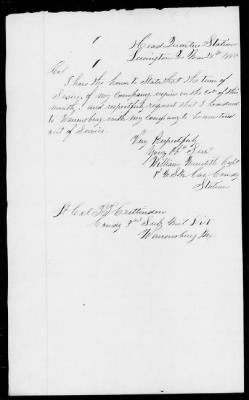 Head Quarters Station
Lexington Mo
Col
I have the honor to State that the term of
Service of my Company expires on the 20th of this
month, and respectfully request that I be ordered
to Warrensburg with my Company to be mustered
out of Service
Very Respectfully
Your Obt Servt
William Meredith Capt
Comdg
Station
Lt Col T T Crittenden
Comdg 2nd Sub Dist
Warrensburg Mo